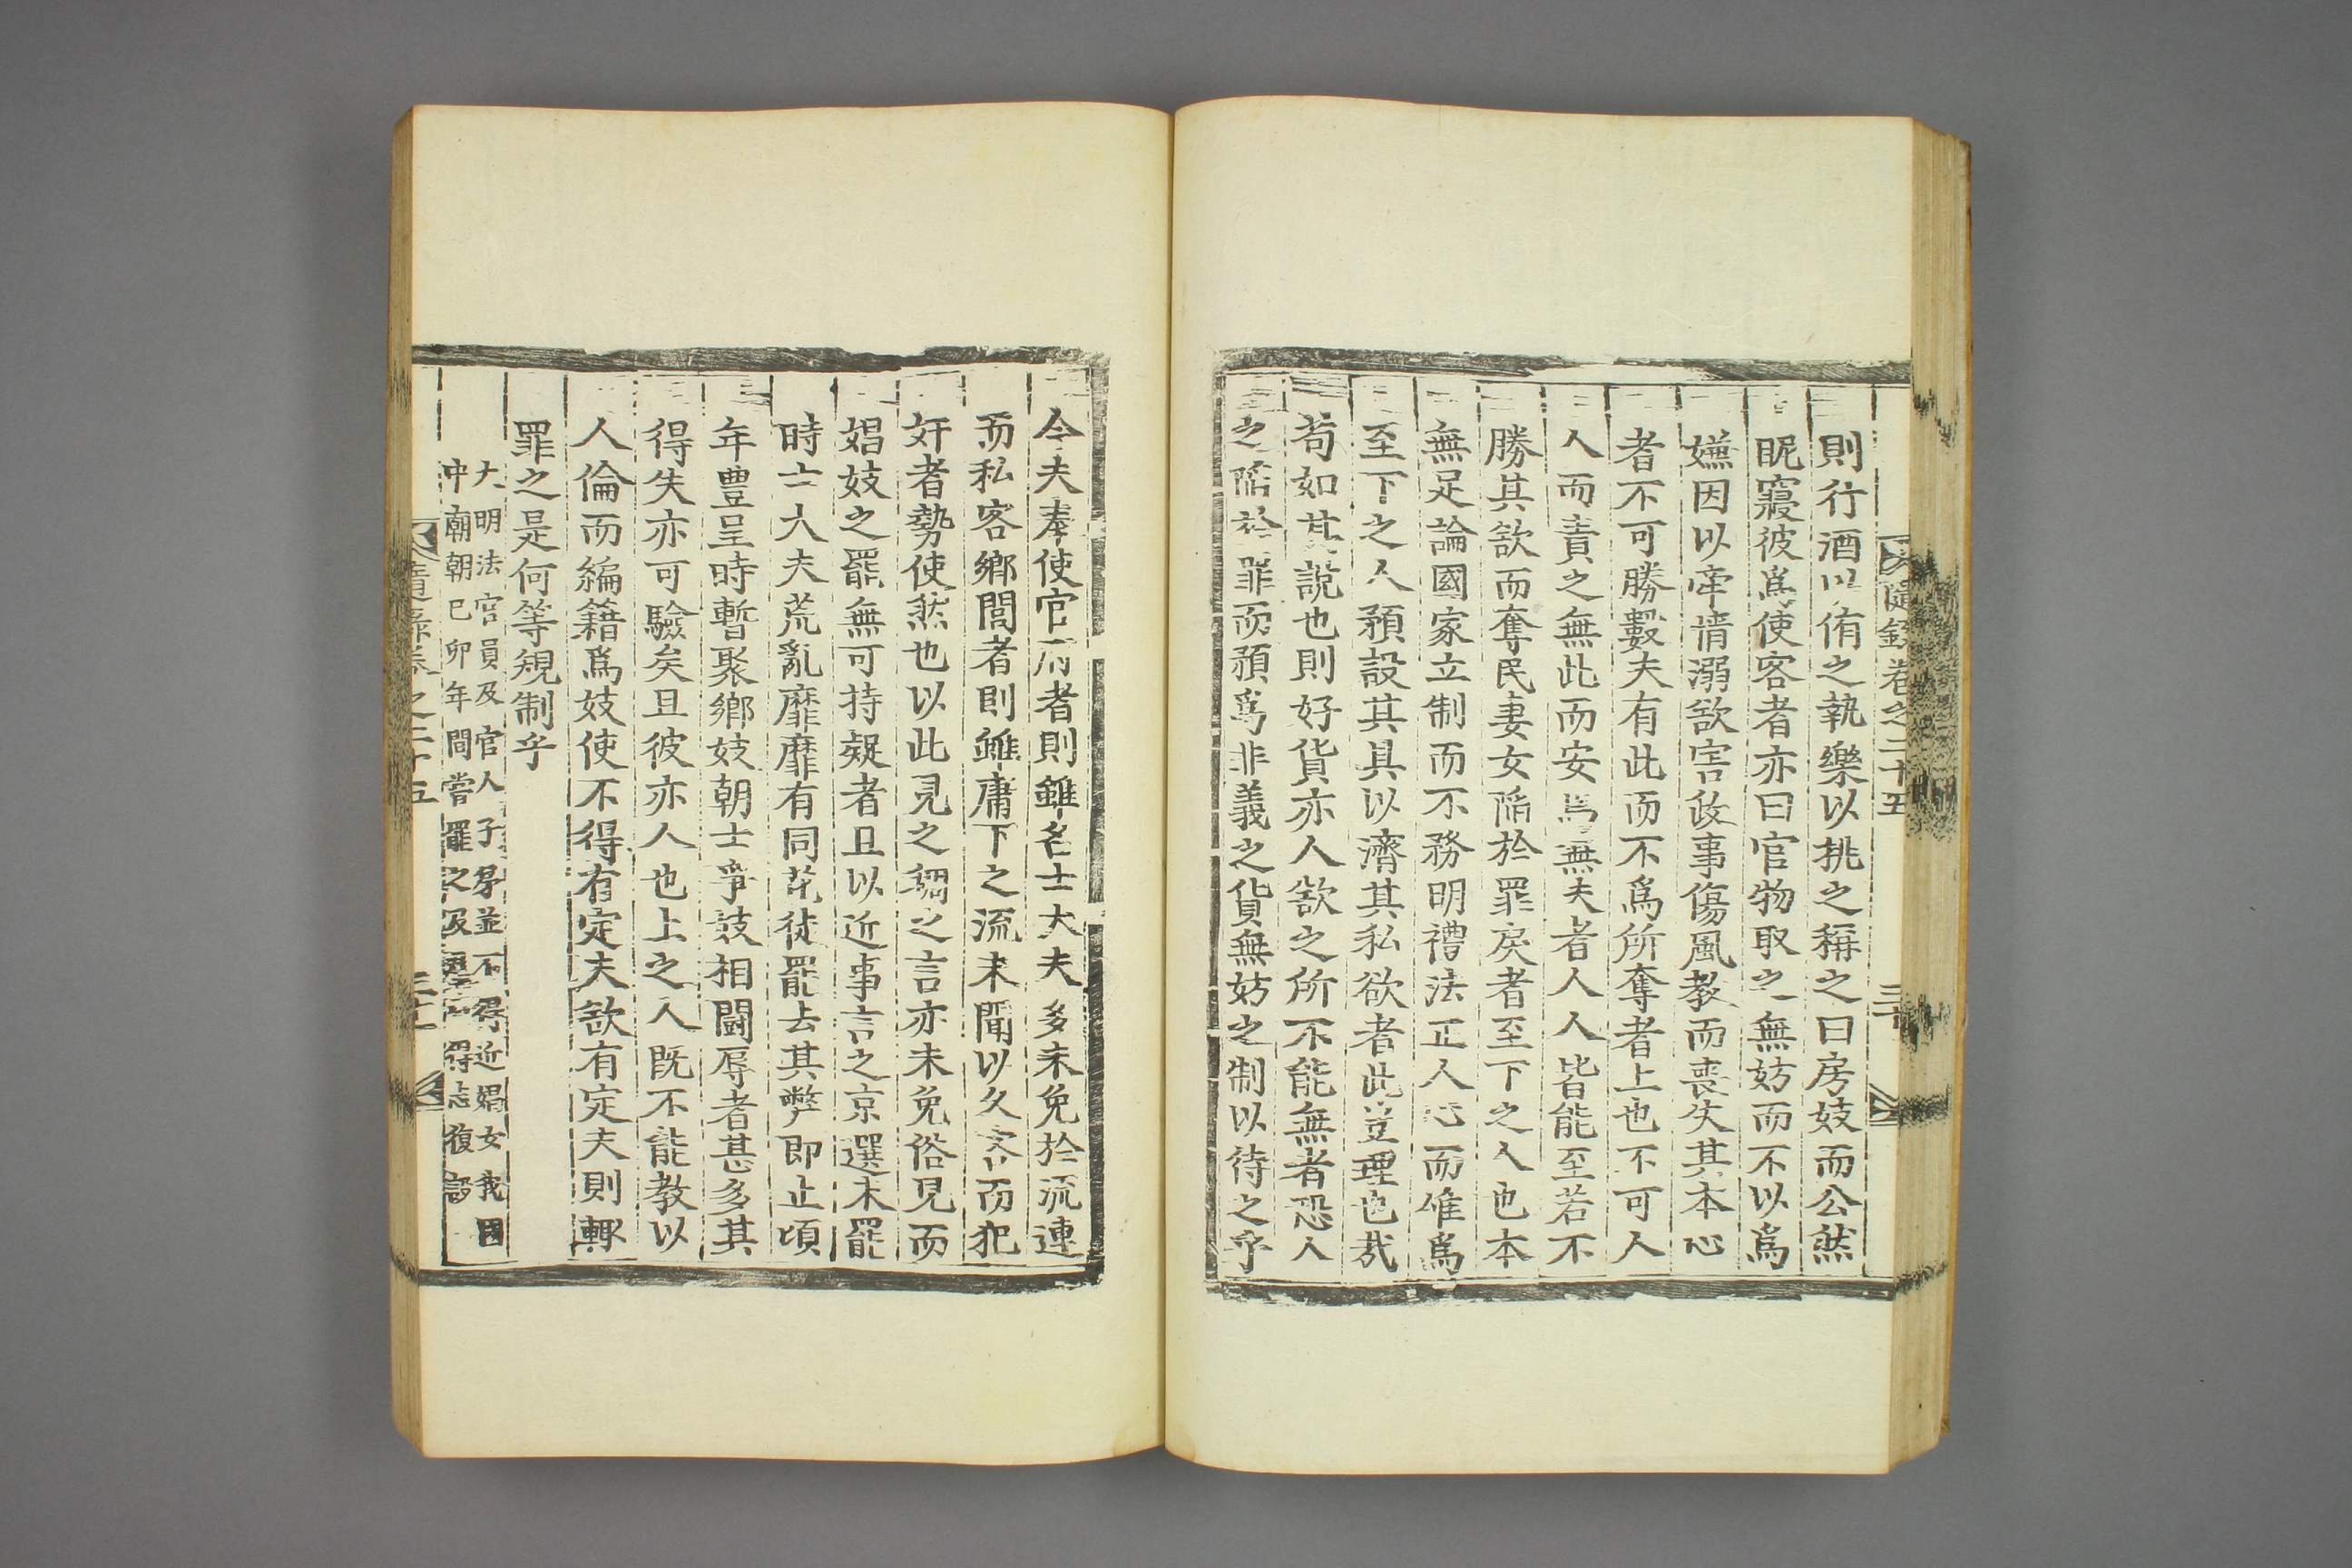 隨錄卷之二十五
三十
則行酒以侑之執樂以挑之稱之曰房妓而公然
昵寢彼爲使客者亦曰官物取之無妨而不以爲
嫌因以牽情溺欲害政事傷風敎而喪失其本心
者不可勝數夫有此而不爲所奪者上也不可人
人而責之無此而安焉無夫者人人皆能至若不
勝其欲而奪民妻女陷於罪戾者至下之人也本
無足論國家立制而不務明禮法正人心而唯爲
至下之人預設其具以濟其私欲者此豈理也哉
苟如其說也則好貨亦人欲之所不能無者恐人
之陷於罪而預爲非義之貨無妨之制以待之乎
今夫奉使官府者則雖名士大夫多未免於流連
而私客鄕閭者則雖庸下之流未聞以久客而犯
奸者勢使然也以此見之稠之言亦未免俗見而
娼妓之罷無可持疑者且以近事言之京選未罷
時士大夫荒亂靡靡有同花徒罷去其弊卽止頃
年豊呈時暫聚鄕妓朝士爭鼓相鬪辱者甚多其
得失亦可驗矣且彼亦人也上之人旣不能敎以
人倫而編籍爲妓使不得有定夫欲有定夫則輒
罪之是何等規制乎
大明法官員及官人子孫並不得近娼女我國
中廟朝己卯年間嘗罷之及 得志復設
隨錄卷之二十五